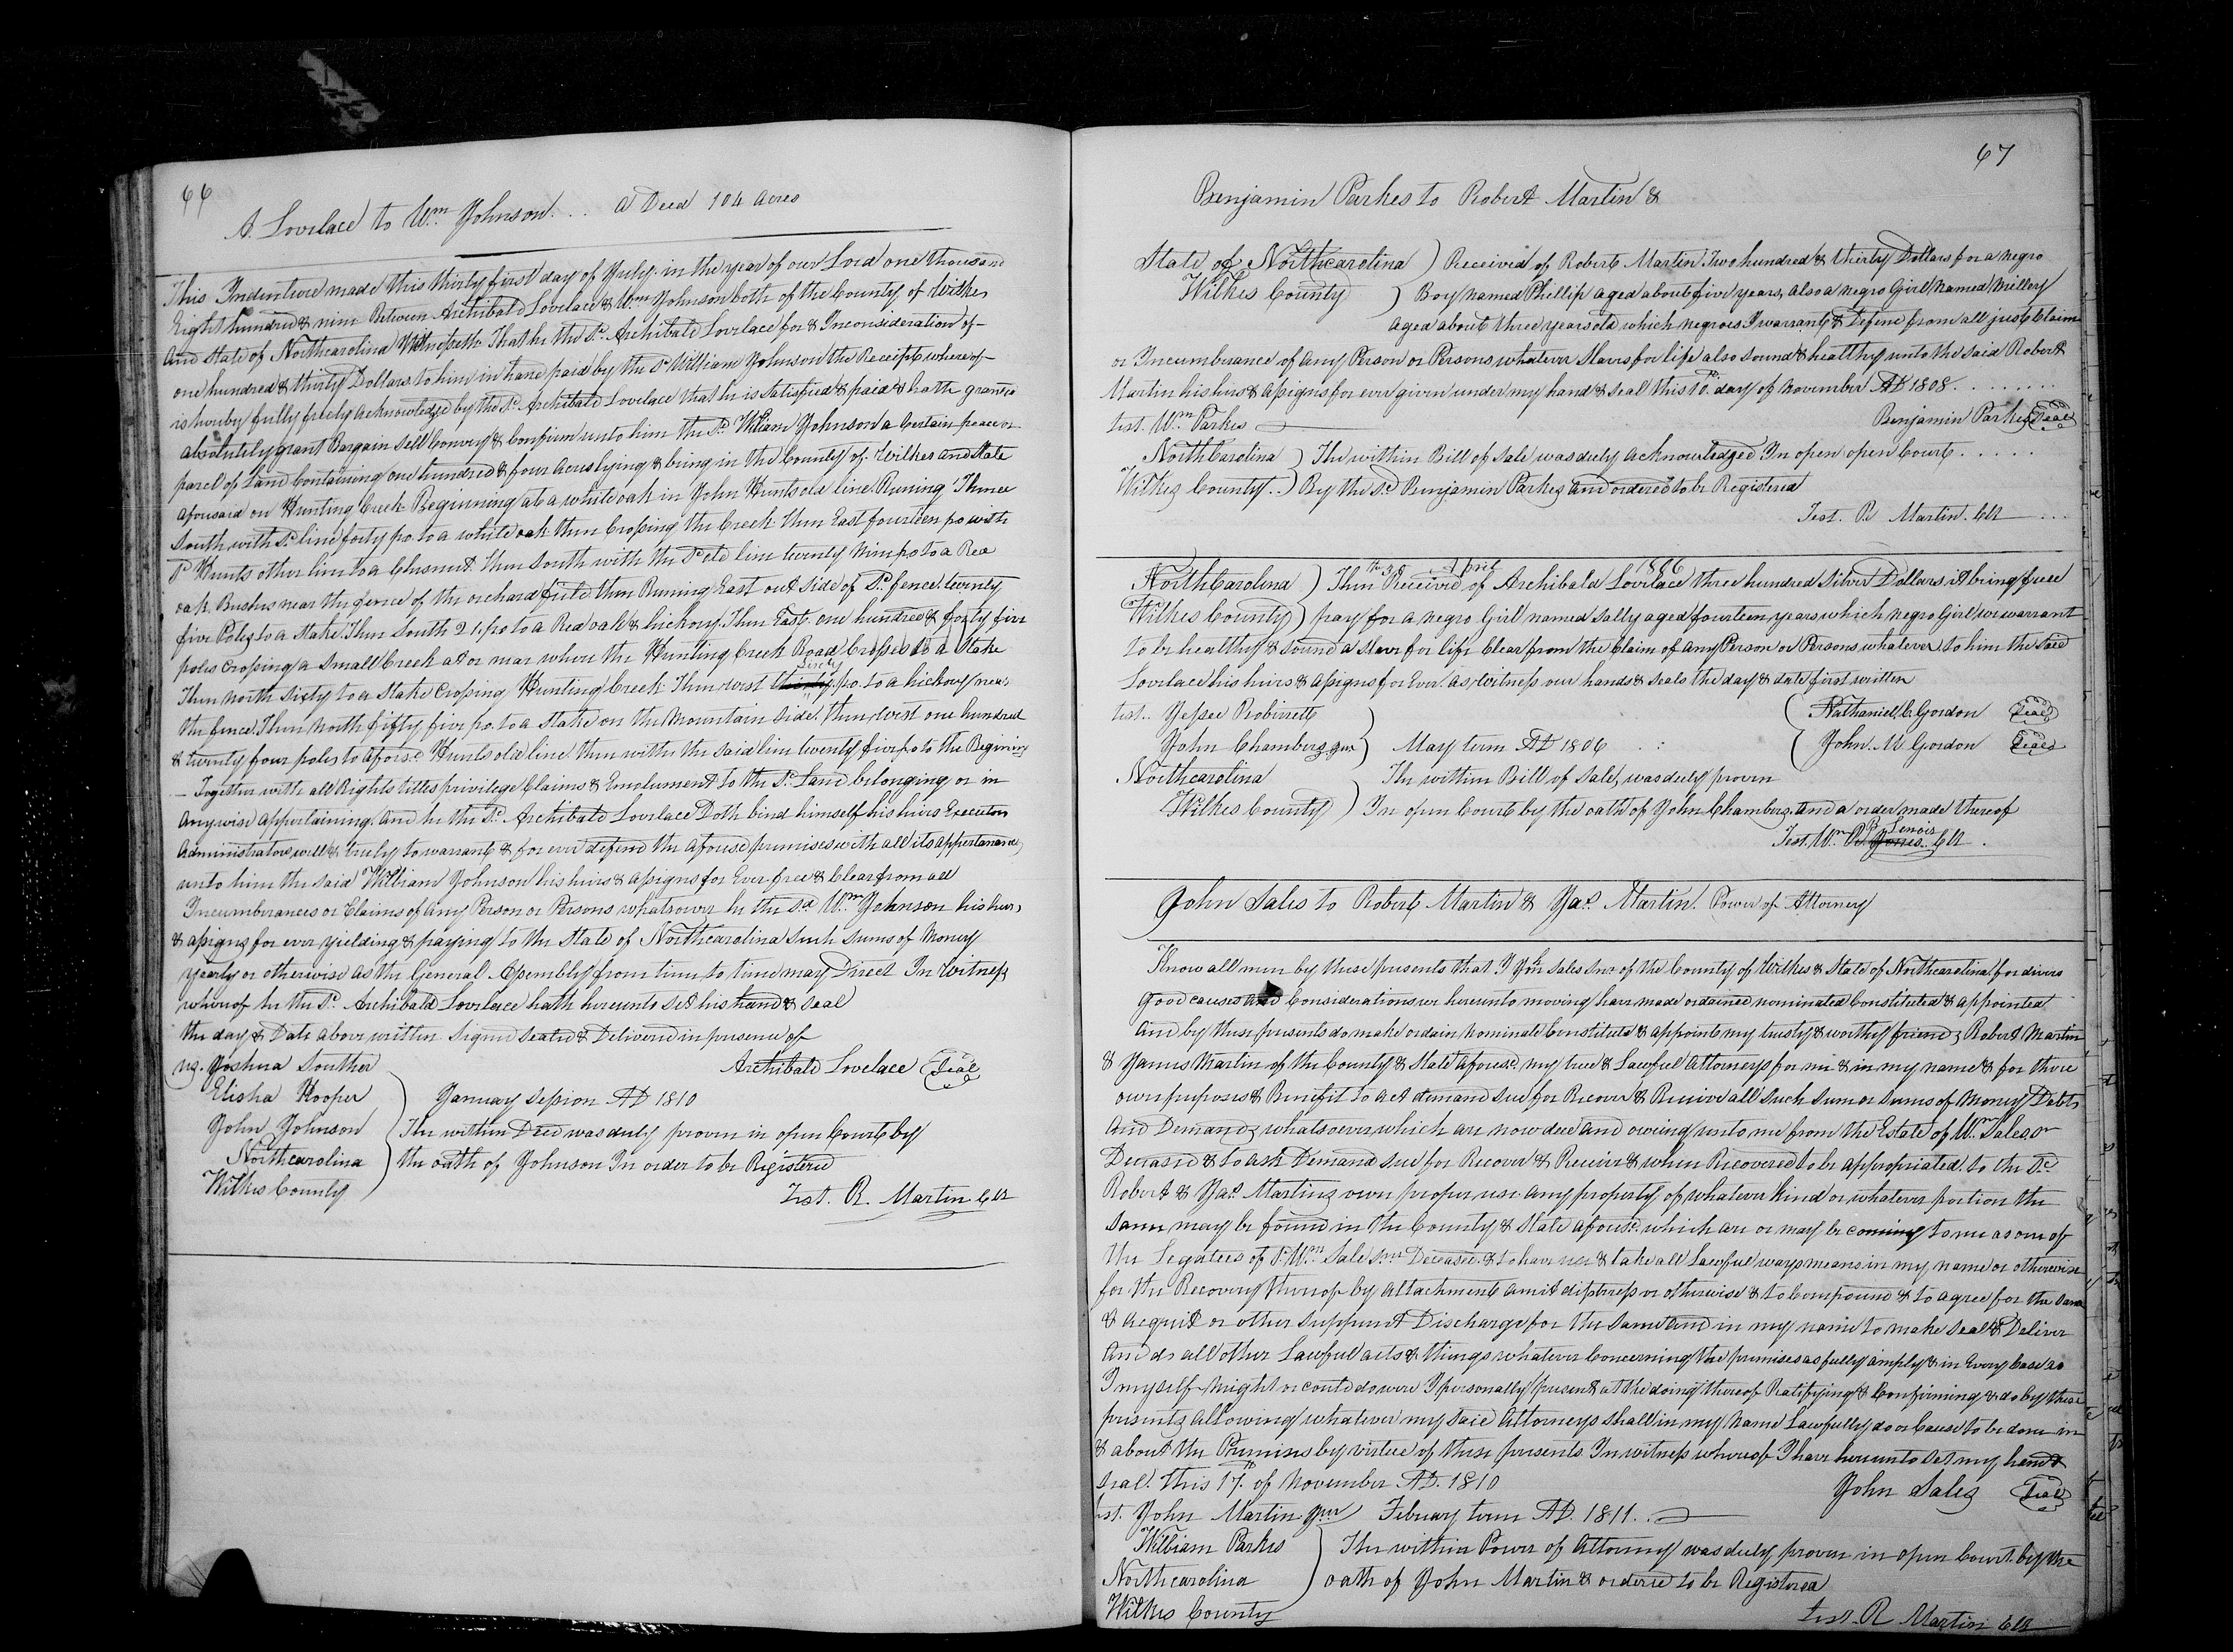 66
A. Lovelace to Wm Johnson... A Deed 104 Acres
This Indenture made this thirty first day of July in the year of our Lord one thousand
Eight hundred & nine Between Archibald Lovelace & Wm Johnson both of the County of Wilkes
And State of Northcarolina Witnesseth That he the Sd Archibald Lovelace for & Inconsideration of
one hundred & thirty Dollars to him in hand paid by the Sd William Johnson the Receipt whereof
is hereby fully freely acknowledge by the Sd Archibald Lovelace that he is satisfied & paid & hath granted
absolutely grant Bargain sell Convey & Confirm unto him the Sd William Johnson a Certain peace or
parcel of Land Containing one hundred & four acres lying & being in the County of Wilkes and State
aforesaid on Hunting Creek Beginning at a white oak in John Hunts old line Runing Thence
South with Sd line forty po. to a white oak then Crossing the Creek then East fourteen po with
Sd Hunts other line to a Chesnut then South with the Sd old line twenty nine po to a Red
oak Bushes near the fence of the orchard field then Runing East out side of Sd fence twenty
five Poles to a Stake Then South 21 po to a Red oak & hickory Then East one hundred & forty five
poles Crossing a Small Creek at or near where the Hunting Creek Road Crosses to a Stake
Then North Sixty to a Stake Crossing Hunting Creek Then West thirty sixty po. to a hickory near
the fence Then North fifty five po. to a Stake on the Mountain Side, then West one hundred
& twenty four poles to afors.d Hunts old line then with the said line twenty five po to the Begining
– Together with all Rights titles privilege Claims & Emolument to the Sd Land belonging or in
Anywise appertaining And he the Sd Archibald Lovelace Doth bind himself his heirs Executors
Administrators will & truly to warrant & for ever defend the aforesd premises with all its appertanances
unto him the said William Johnson his heirs & assigns for Ever free & Clear from all
Incumberances or Claims of any Person or Persons whatsoever he the Sd Wm Johnson his heirs
& assigns for ever yielding & paying to the State of Northcarolina Such Sums of Money
yearly or otherwise as the General Assembly from time to time may Direct In Witness
whereof he the Sd Archibald Lovelace hath hereunto Set his hand & Seal
the day & Date above written Signed Sealed & Delivered in presence of
Joshua Souther Archibald Lovelace Seal
Elisha Hooper January Session AD 1810
John Johnson The within Deed was duly proven in open Court by
Northcarolina the oath of Johnson In order to be Registered
Wilkes County Test. R. Martin Clk
67
Benjamin Parkes to Robert Martin &
State of Northcarolina ) Received of Robert Martin Two hundred & thirty Dollars for a negro
Wilkes County ) Boy named Phillip aged about five years, also a negro Girl named Milley
aged about three years old which negroes I warrant & Defend from all just Claim
or Incumberance of any Person or Persons whatever Slaves for life also Sound & healthy unto the said Robert
Martin his heirs & assigns for ever given under my hand & Seal this 10th day of November AD 1808.
test. Wm Parkes Benjamin Parkes Seal
North Carolina ) The within Bill of Sale was duly acknowledged In open open Court
Wilkes County.. ) By the Sd Benjamin Parkes and ordered to be Registered
Test. R Martin. Clk
NorthCarolina ) Then Received 3d April 1806 of Archibald Lovelace three hundred Silver Dollars it being full
Wilkes County ) pay for a negro Girl named Sally aged fourteen years which negro Girl we warrant
to be healthy & Sound a Slave for life Clear from the Claim of any Person or Persons whatever to him the said
Lovelace his heirs & assigns for Ever. As Witness our hands & Seals the day & date first written
test.. Jessee Robinett Nathaniel C. Gordon Seal
John Chambers Jur ) May term AD 1806 John M Gordon Seal
Northcarolina The within Bill of Sale, was duly proven
Wilkes County ) In open Court by the oath of John Chambers and a order made thereof
Test. Wm B Lenoir Clk
John Sales to Robert Martin & Jas. Martin. Power of Attorney
Know all men by these presents that I Jno Sales Snr of the County of Wilkes & State of Northcarolina for divers
good causes and Considerations us hereunto moving have made ordained nominated Constituted & appointed
And by these presents do make ordain Nominate Constitute & appoint my trusty & worthy friends Robert Martin
& James Martin of the County & State aforesd my true & Lawful Attorneys for me & in my name & for there
own purposes & Benifit to act demand Sue for Recover & Receive all Such Sum or Sums of Money Debts
And Demands whatsoever which are now due and owing unto me from the Estate of Wm Sales
Deceased & to ask Demand Sue for Recover & Receive & when Recovered to be appropriated to the Sd
Robert & Jas. Martins own proper use any property of whatever Kind or whatever portion the
Same may be found in the County & State aforesd which are or may be coming to me as one of
the Legatees of Sd Wm Sale Snr Deceased & to have use & take all Lawful ways means in my name or otherwise
for the Recovery thereof by Attachment distress or otherwise & to Compound & to agree for the Same
& Acquit or other Discharge for the Same and in my name to make Seal & Deliver
And do all other Lawful acts & things whatever Concerning the premises as fully amply & in Every Case as
I myself might or could do were I personally present at the doing thereof Ratifying & Confirming & do by these
presents allowing whatever my Said Attorneys Shall in my name Lawfully do or Cause to be done in
& about the Premises by virtue of these presents In witness whereof I have hereunto Set my hand &
Seal. this 17th of November AD. 1810 John Sales Seal
test. John Martin Jur Febuary term AD. 1811.
William Parkes ) The within Power of Attorney was duly proven in open Court by the
Northcarolina ) oath of John Martin & ordered to be Registered
Wilkes County test. R Martin Clk